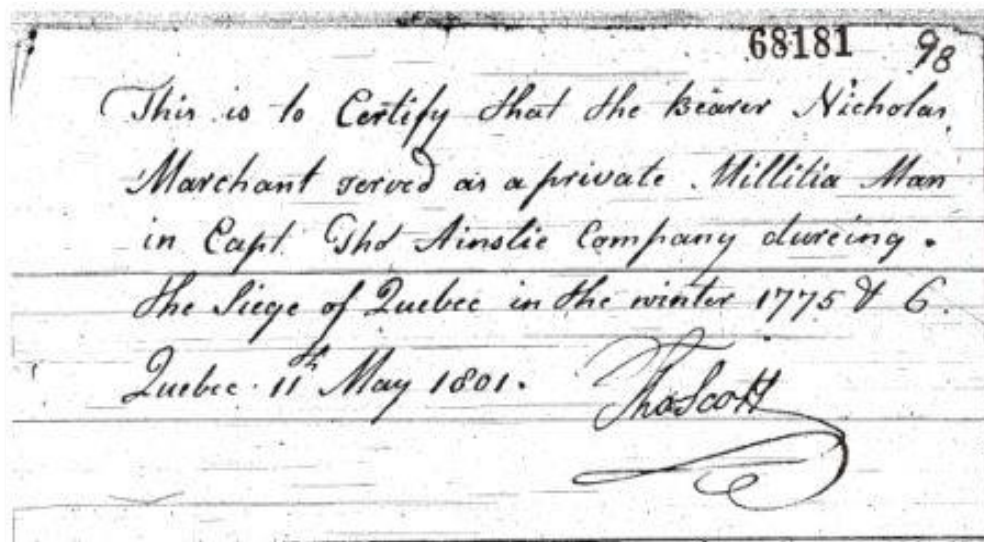 68181 98
This is to Certify that the Bearer Nicholas
Marchant served as a private Millitia Man
in Capt. Thos Ainslie Company dureing.
the Siege of Quebec in the winter 1775 & 6.
Quebec. 11th May 1801.
Thos Scott